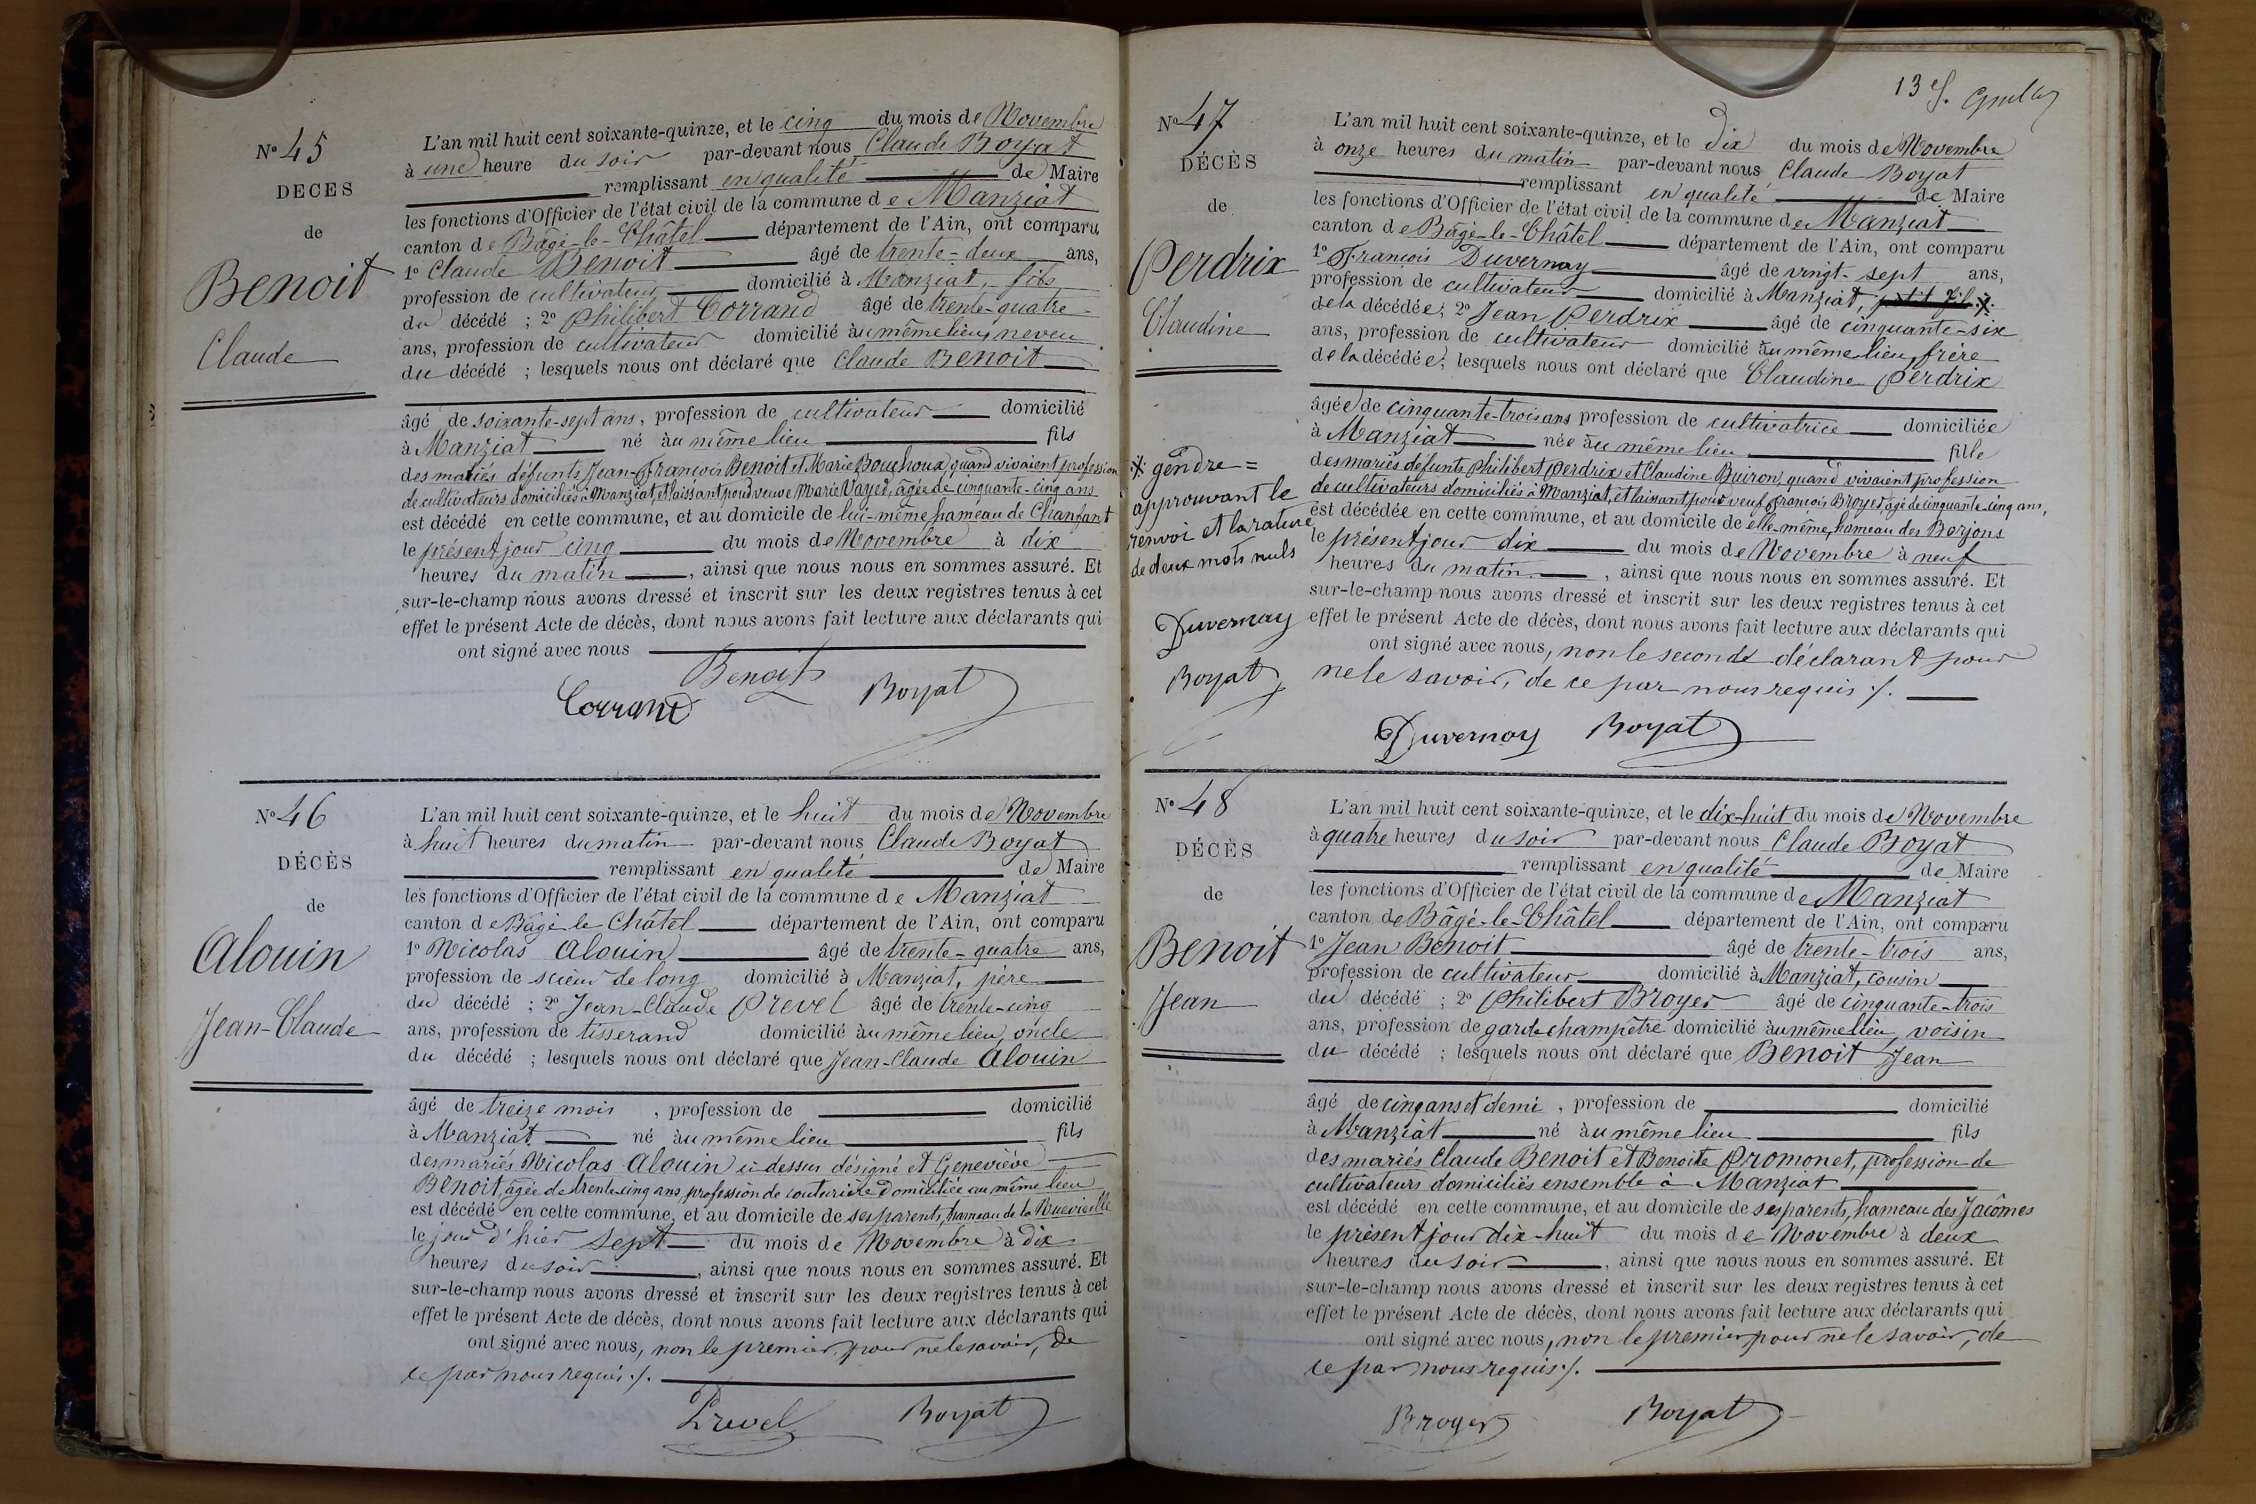 N° 45
DECES
de
Benoit
Claude
L'an mil huit cent soixante-quinze, et le cinq du mois de Novembre
à une heure du soir par-devant nous Claude Boyat
remplissant en qualité de Maire
les fonctions d'Officier de l'état civil de la commune de Manziat
canton de Bâgé-le-Châtel département de l'Ain, ont comparu
1° Claude Benoit âgé de trente-deux ans,
profession de cultivateur domicilié à Manziat, fils
du décédé ; 2° Philibert Corrand âgé de trente-quatre
ans, profession de cultivateur domicilié au même lieu, neveu
du décédé ; lesquels nous ont déclaré que Claude Benoit
âgé de soixante-sept ans, profession de cultivateur domicilié
à Manziat né au même lieu fils
des mariés défunts Jean-François Benoit et Marie Bouchoux, quand vivaient profession
de cultivateurs domiciliés à Manziat, et laissant pour veuve Marie Vayer, âgée de cinquante-cinq ans
est décédé en cette commune, et au domicile de lui-même hameau de Chanfant
le présent jour cinq du mois de Novembre à dix
heures du matin, ainsi que nous nous en sommes assuré. Et
sur-le-champ nous avons dressé et inscrit sur les deux registres tenus à cet
effet le présent Acte de décès, dont nous avons fait lecture aux déclarants qui
ont signé avec nous
Benoit
Corrand Boyat
N° 46
DÉCÈS
de
Alouin
Jean-Claude
L'an mil huit cent soixante-quinze, et le huit du mois de Novembre
à huit heures du matin par-devant nous Claude Boyat
remplissant en qualité de Maire
les fonctions d'Officier de l'état civil de la commune de Manziat
canton de Bâgé-le-Châtel département de l'Ain, ont comparu
1° Nicolas Alouin âgé de trente-quatre ans,
profession de scieur de long domicilié à Manziat, père
du décédé ; 2° Jean-Claude Prevel âgé de trente-cinq
ans, profession de tisserand domicilié au même lieu, oncle
du décédé ; lesquels nous ont déclaré que Jean-Claude Alouin
âgé de treize mois, profession de domicilié
à Manziat né au même lieu fils
des mariés Nicolas Alouin ci-dessus désigné et Geneviève
Benoit, âgée de trente-cinq ans, profession de couturière domiciliée au même lieu
est décédé en cette commune, et au domicile de ses parents, hameau de la Ruevieille
le jour d'hier sept du mois de Novembre à dix
heures du soir, ainsi que nous nous en sommes assuré. Et
sur-le-champ nous avons dressé et inscrit sur les deux registres tenus à cet
effet le présent Acte de décès, dont nous avons fait lecture aux déclarants qui
ont signé avec nous, non le premier pour ne le savoir, de
ce par nous requis ./.
Prevel Boyat
13 f.
N° 47
DÉCÈS
de
Perdrix
Claudine
L'an mil huit cent soixante-quinze, et le Dix du mois de Novembre
à onze heures du matin par-devant nous Claude Boyat
remplissant en qualité de Maire
les fonctions d'Officier de l'état civil de la commune de Manziat
canton de Bâgé-le-Châtel département de l'Ain, ont comparu
1° François Duvernay âgé de vingt-sept ans,
profession de cultivateur domicilié à Manziat, petit fils
de la décédée ; 2° Jean Perdrix âgé de cinquante-six
ans, profession de cultivateur domicilié au même lieu, frère
de la décédée ; lesquels nous ont déclaré que Claudine Perdrix
âgée de cinquante-trois ans profession de cultivatrice domiciliée
à Manziat née au même lieu fille
des mariés défunts Philibert Perdrix et Claudine Buiron, quand vivaient profession
de cultivateurs domiciliés à Manziat, et laissant pour veuf François Broyer âgé de cinquante-cinq ans,
est décédée en cette commune, et au domicile de elle-même, hameau des Borjons
le présent jour dix du mois de Novembre à neuf
heures du matin, ainsi que nous nous en sommes assuré. Et
sur-le-champ nous avons dressé et inscrit sur les deux registres tenus à cet
effet le présent Acte de décès, dont nous avons fait lecture aux déclarants qui
ont signé avec nous, non le second déclarant pour
ne le savoir, de ce par nous requis ./.
Duvernay Boyat
gendre =
approuvant le
renvoi et la rature
de deux mots nuls
Duvernay
Boyat
N° 48
DÉCÈS
de
Benoit
Jean
L'an mil huit cent soixante-quinze, et le dix-huit du mois de Novembre
à quatre heures du soir par-devant nous Claude Boyat
remplissant en qualité de Maire
les fonctions d'Officier de l'état civil de la commune de Manziat
canton de Bâgé-le-Châtel département de l'Ain, ont comparu
1° Jean Benoit âgé de trente-trois ans,
profession de cultivateur domicilié à Manziat, cousin
du décédé ; 2° Philibert Broyer âgé de cinquante-trois
ans, profession de garde champêtre domicilié au même lieu, voisin
du décédé ; lesquels nous ont déclaré que Benoit Jean
âgé de cinq ans et demi, profession de domicilié
à Manziat né au même lieu fils
des mariés Claude Benoit et Benoite Promonet, profession de
cultivateurs domiciliés ensemble à Manziat
est décédé en cette commune, et au domicile de ses parents, hameau des Jacômes
le présent jour dix-huit du mois de Novembre à deux
heures du soir, ainsi que nous nous en sommes assuré. Et
sur-le-champ nous avons dressé et inscrit sur les deux registres tenus à cet
effet le présent Acte de décès, dont nous avons fait lecture aux déclarants qui
ont signé avec nous, non le premier pour ne le savoir, de
ce par nous requis ./.
Broyer Boyat